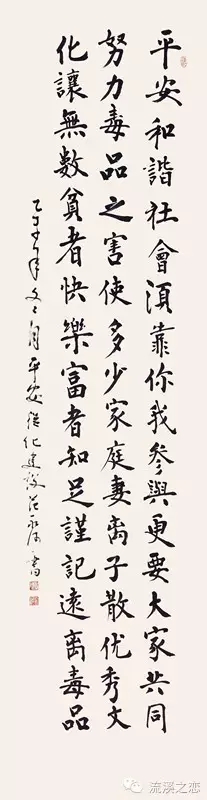 平安和諧社會湏靠你我參與更要大家共同
努力毒品之害使多少家庭妻离子散优秀文
化讓無數貧者快樂富者知足謹記遠离毒品
年 月平安從化建設 書
流溪之恋